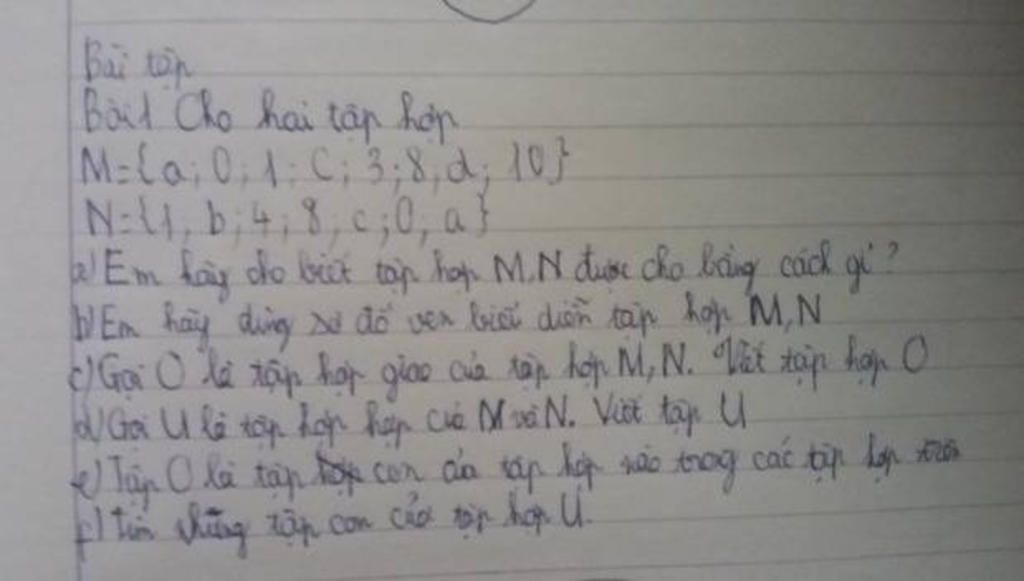 Bài tập
Bài 1 Cho hai tập hợp
M={a; 0; 1; C; 3; 8; d; 10}
N={1, b; 4; 8, c; 0, a}
a) Em hãy cho biết tập hợp M, N được cho bằng cách gì?
b) Em hãy dùng sơ đồ ven biểu diễn tập hợp M, N
c) Gọi O là tập hợp giao của tập hợp M, N. Viết tập hợp O
d) Gọi U là tập hợp hợp của M và N. Viết tập U
e) Tập O là tập con của tập hợp nào trong các tập hợp trên
f) Tìm những tập con của tập hợp U.